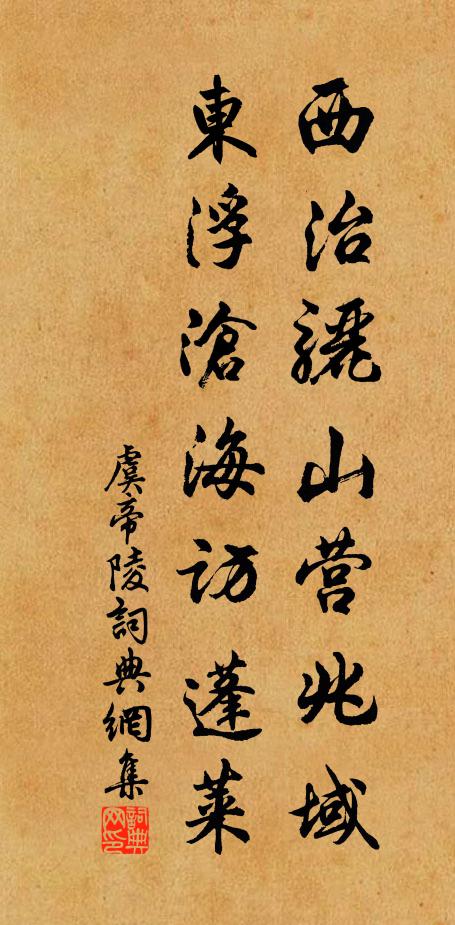 西治驪山营兆域
東浮滄海訪蓬莱
虞帝陵詞典網集
詞典网印